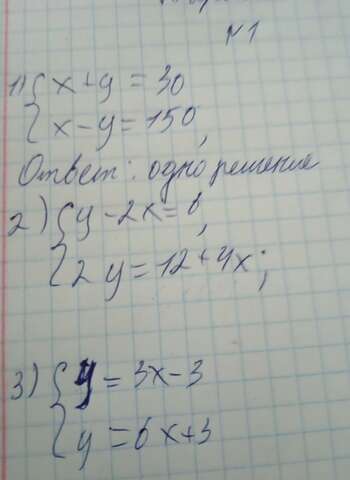 №1
1) { x + y = 30
{ x - y = 150,
Ответ: одно решение
2) { y - 2x = 6,
{ 2y = 12 + 4x;
3) { y = 3x - 3
{ y = 6x + 3